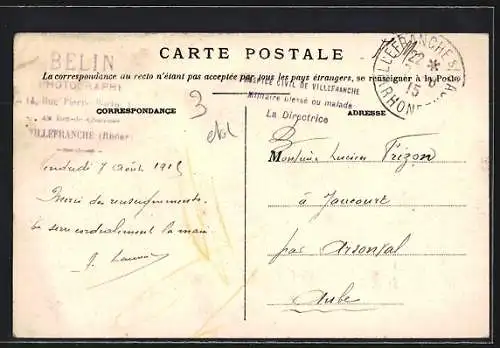 BELIN
PHOTOGRAPHE
14, Rue Pierre
Au Rez-de-Chaussée
VILLEFRANCHE (Rhône)
CARTE POSTALE
La correspondance au recto n'étant pas acceptée par tous les pays étrangers, se renseigner à la Poste
HOSPICE CIVIL DE VILLEFRANCHE
Militaire blessé ou malade
La Directrice
VILLEFRANCHE S/
22 *
15
RHONE
CORRESPONDANCE
ADRESSE
3
Vendredi 7 Août 1915
Merci des renseignements.
Te serre cordialement la main
Monsieur Lucien Frizon
à Jaucourt
par Arsonval
Aube